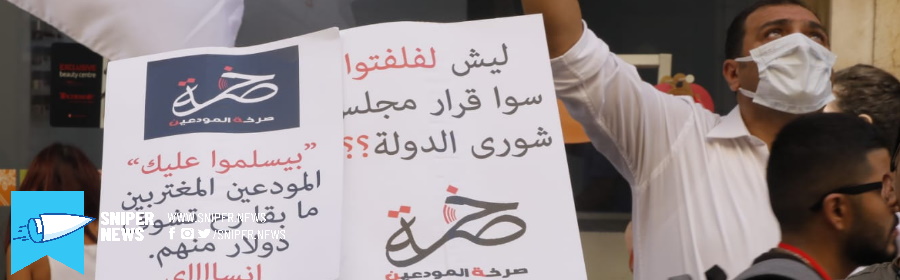 EXCLUSIVE
beauty centre
صرخة
صرخة المودعين
”بيسلموا عليك“
المودعين المغتربين
دولار منهم.
إنسااااي
ليش لفلفتوا
سوا قرار مجلس
شورى الدولة؟؟
صرخة
صرخة المودعين
SNIPER
NEWS
WWW.SNIPER.NEWS
/SNIPER.NEWS